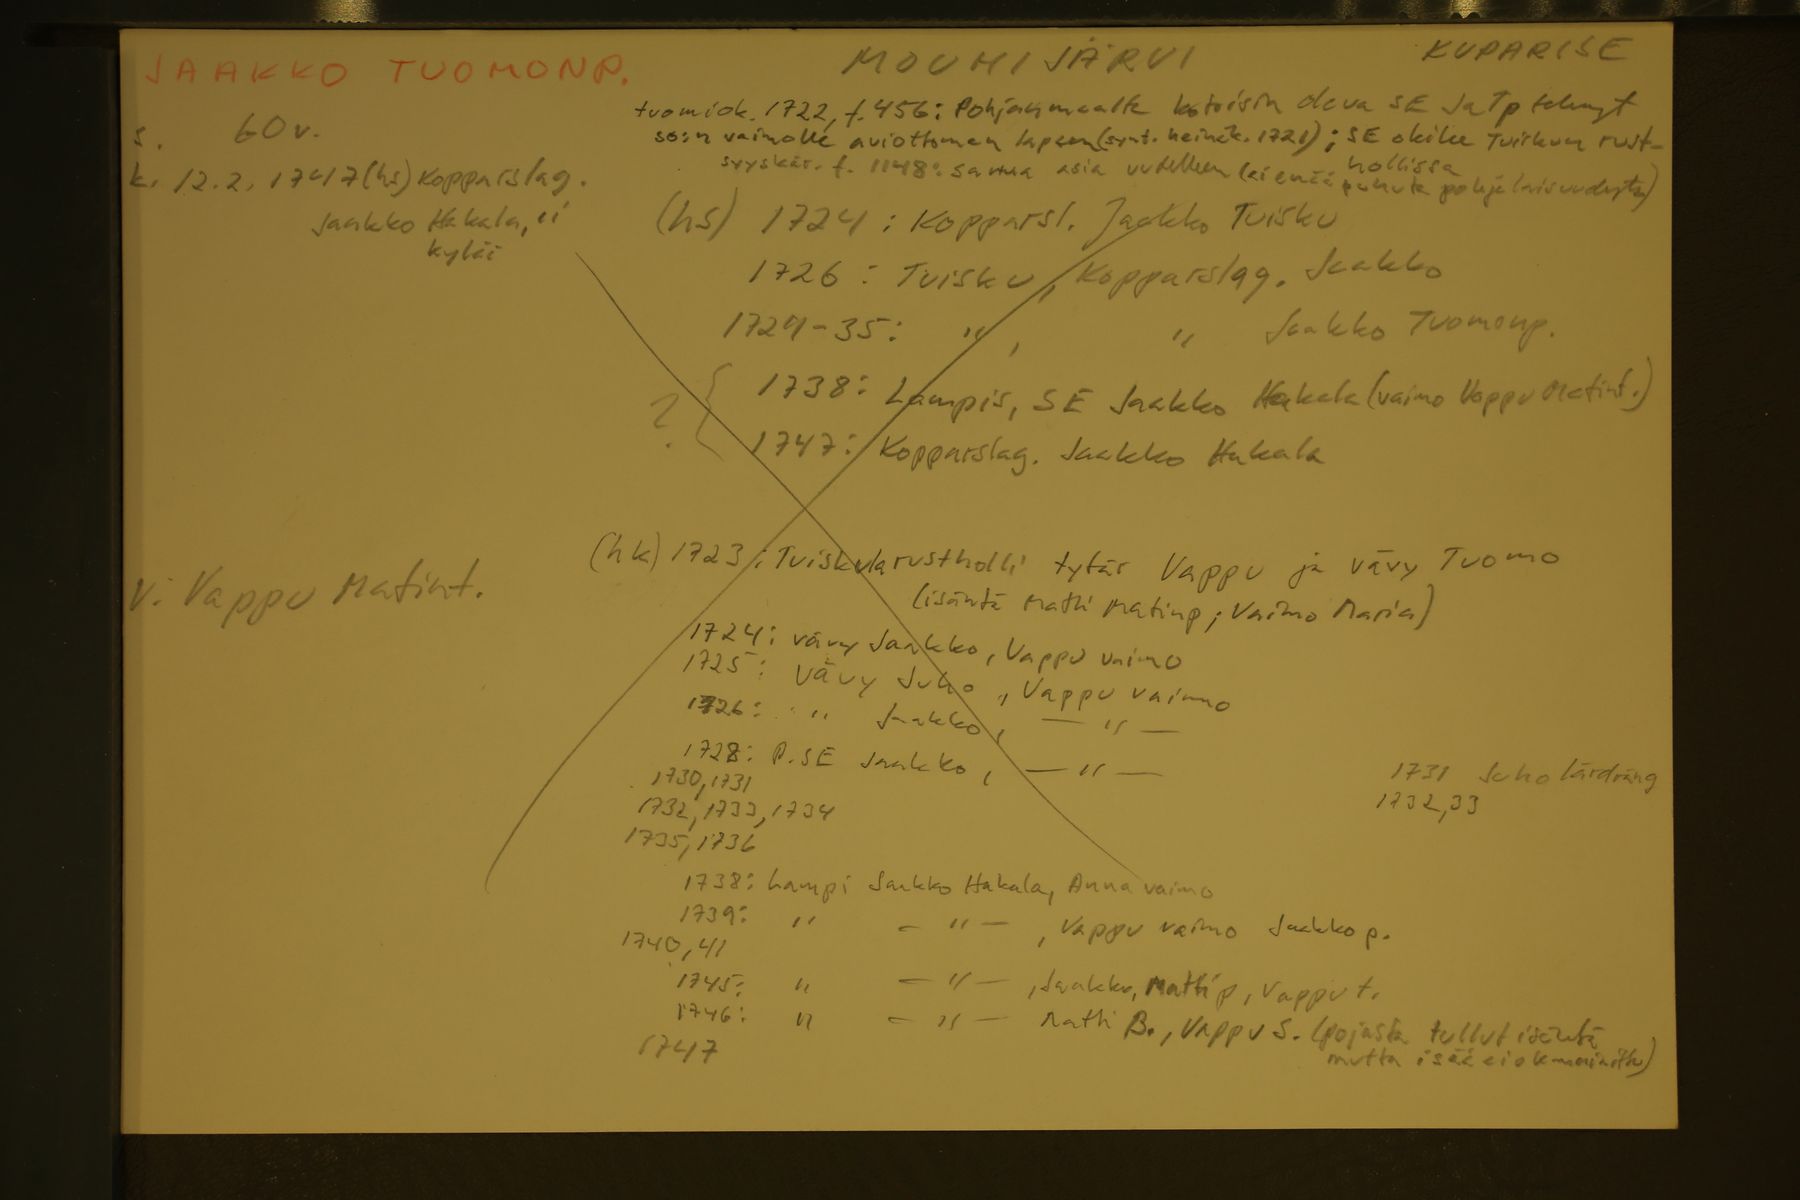 JAAKKO TUOMONP.
MOUHIJÄRVI
KUPARISE
tuomiok. 1722, f. 456: Pohjanmaalta kotoisin oleva SE JaTp tehnyt
so:n vaimolle aviottoman lapsen (synt. heinäk. 1721); SE oleilee Tuiskun rust-
hollissa
syyskär. f. 1148: sama asia uudelleen (ei enää puhuta pohjalaisuudesta)
s. 60 v.
k. 12.2.1747 (hs) Kopparslag.
Jaakko Hakala, ii
kylää
(hs) 1724: Kopparsl. Jaakko Tuisku
1726: Tuisku, Kopparslag. Jaakko
1727-35: ", " Jaakko Tuomonp.
? { 1738: Lampis, SE Jaakko Hakala (vaimo Vappu Matint.)
1747: Kopparslag. Jaakko Hakala
v: Vappu Matint.
(hk) 1723: Tuiskula rustholli tytär Vappu ja vävy Tuomo
(isäntä Matti Matinp; vaimo Maria)
1724: vävy Jaakko, Vappu vaimo
1725: vävy Juho, Vappu vaimo
1726: " Jaakko, — " —
1728: P. SE Jaakko, — " —
1730, 1731
1732, 1733, 1734
1735, 1736
1731 Juho lärdräng
1732, 33
1738: Lampi Jaakko Hakala, Anna vaimo
1739: " — " —, Vappu vaimo Jaakko p.
1740, 41
1745: " — " —, Jaakko, Matti p, Vappu t.
1746: " — " — Matti B., Vappu S. (pojasta tullut isäntä
mutta isää ei ole mainittu)
1747